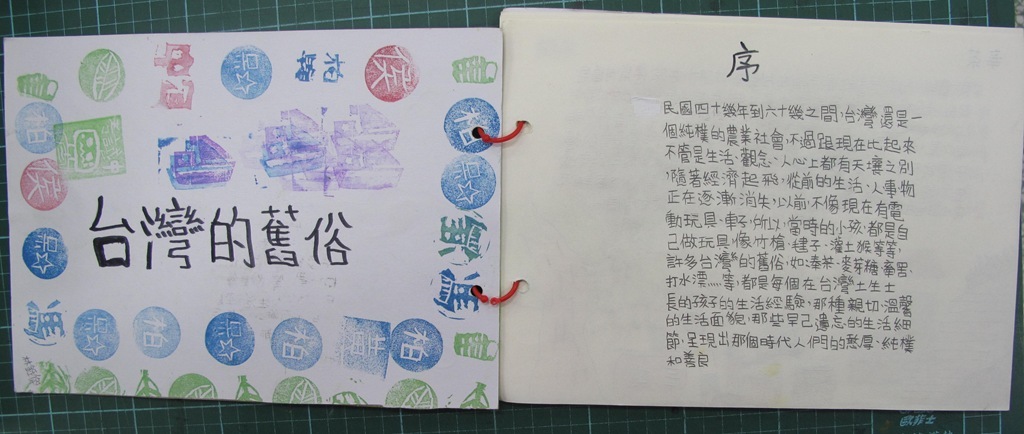 台灣的舊俗
侯
柏
黑
柏
侯
黑
柏
黑
馬
黑
柏
黑
柏
黑
柏
序
民國四十幾年到六十幾之間,台灣還是一
個純樸的農業社會,不過跟現在比起來
不管是生活、觀念、人心上都有天壤之別
,隨著經濟起飛,從前的生活、人事物
正在逐漸消失,以前不像現在有電
動玩具、車子,所以,當時的小孩,都是自
己做玩具,像竹槍、毽子、灌土猴等等,
許多台灣的舊俗,如:奉茶、麥芽糖、畚箕、
打水漂……等,都是每個在台灣土生土
長的孩子的生活經驗,那種親切、溫馨
的生活面貌,那些早已遺忘的生活細
節,呈現出那個時代人們的憨厚、純樸
和善良